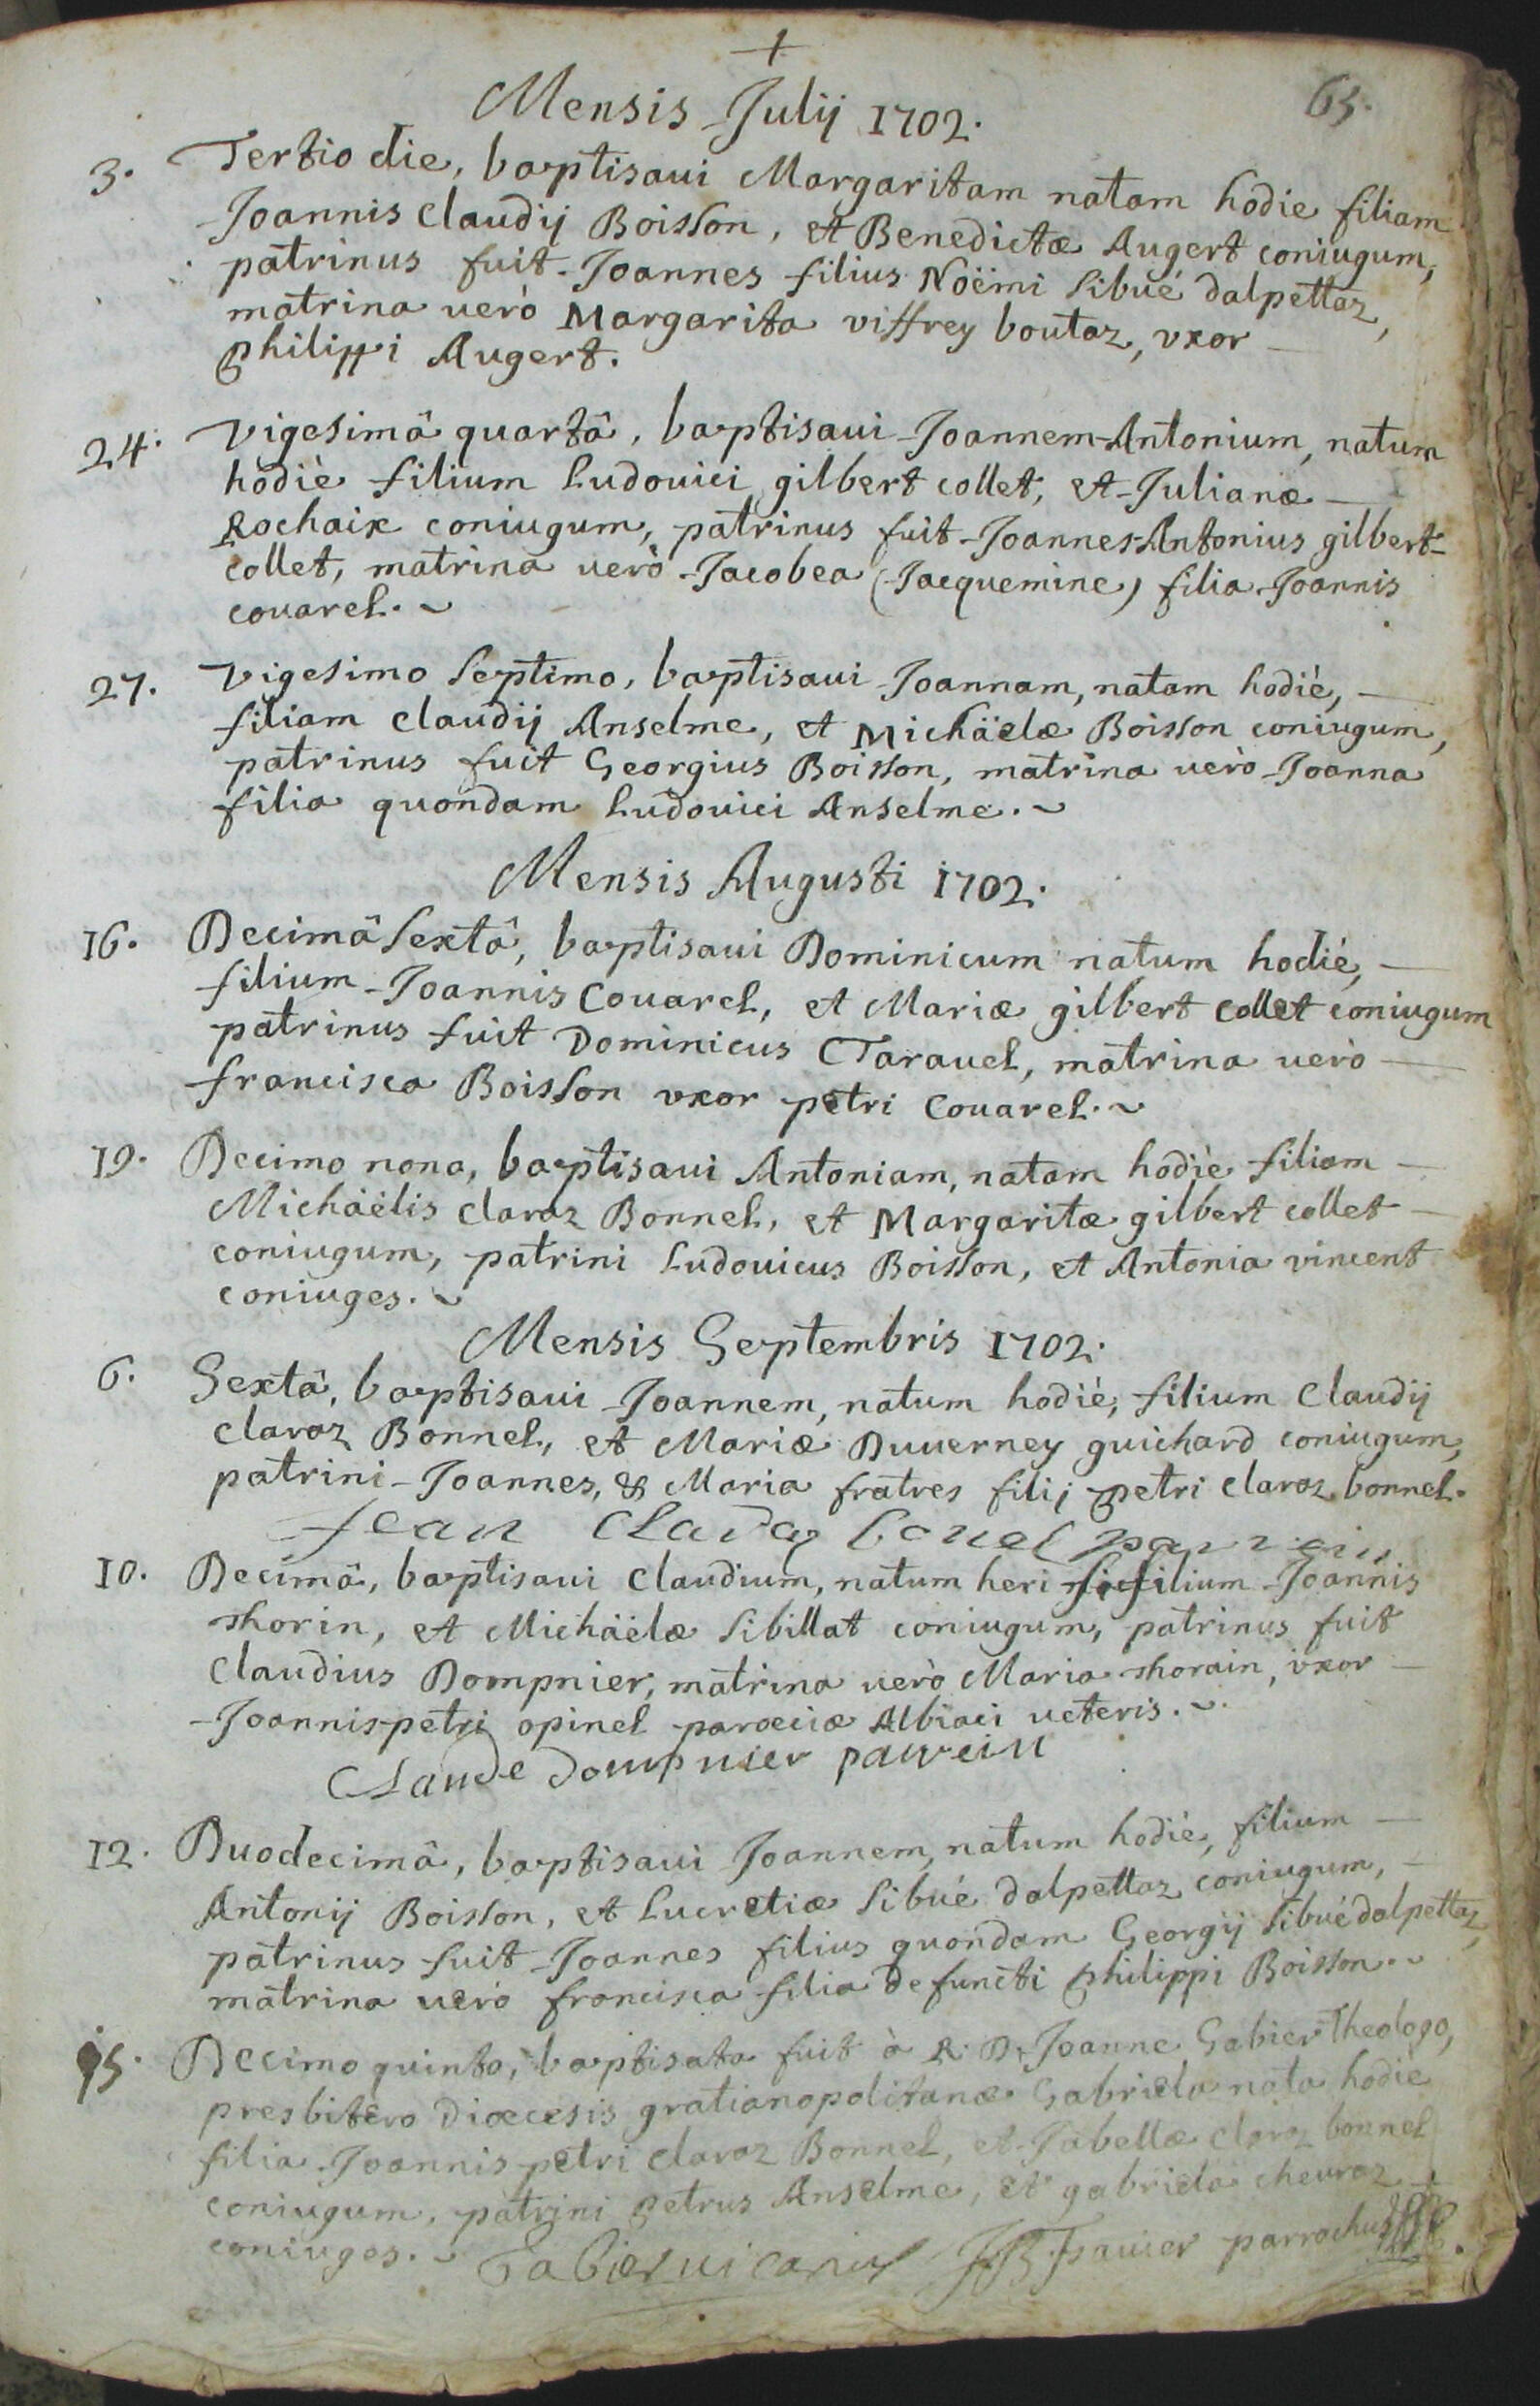 +
65.
Mensis Julij 1702.
3. Tertio die, baptisaui Margaritam natam hodie filiam
Joannis Claudij Boisson, et Benedictæ Augert coniugum,
patrinus fuit Joannes filius Nöëmi Sibué dalpettaz,
matrina uerò Margarita viffrey boutaz, vxor
Philippi Augert.
24. Vigesimâ quartâ, baptisaui Joannem-Antonium, natum
hodiè filium Ludouici gilbert collet, et Julianæ
Rochaix coniugum, patrinus fuit Joannes-Antonius gilbert
collet, matrina uerò Jacobea (Jacquemine) filia Joannis
couarel.
27. Vigesimo septimo, baptisaui Joannam, natam hodiè,
filiam claudij Anselme, et Michäelæ Boisson coniugum,
patrinus fuit Georgius Boisson, matrina uerò Joanna
filia quondam Ludouici Anselme.
Mensis Augusti 1702.
16. Decimâ Sextâ, baptisaui Dominicum natum hodiè,
filium Joannis Couarel, et Mariæ gilbert collet coniugum
patrinus fuit Dominicus Tarauel, matrina uerò
francisca Boisson vxor petri Couarel.
19. Decimo nono, baptisaui Antoniam, natam hodiè filiam
Michäëlis claraz Bonnel, et Margaritæ gilbert collet
coniugum, patrini Ludouicus Boisson, et Antonia vincent
coniuges.
Mensis Septembris 1702.
6. Sextâ, baptisaui Joannem, natum hodiè, filium Claudij
claraz Bonnel, et Mariæ Duuerney guichard coniugum,
patrini Joannes, & Maria fratres filij petri claraz bonnel.
Jean Claraz bonel parrein
10. Decimâ, baptisaui Claudium, natum heri filium Joannis
thorin, et Michäëlæ Sibillat coniugum, patrinus fuit
Claudius Dompnier, matrina uerò Maria thorain, vxor
Joannis petri opinel parœciæ Albiaci ueteris.
Claude dompnier parrein
12. Duodecimâ, baptisaui Joannem, natum hodiè, filium
Antonij Boisson, et Lucretiæ Sibué dalpettaz coniugum,
patrinus fuit Joannes filius quondam Georgij Sibué dalpettaz,
matrina uerò francisca filia defuncti Philippi Boisson.
15. Decimo quinto, baptisata fuit à R. D. Joanne Gabier Theologo,
presbitero Diœcesis gratianopolitanæ Gabriela nata hodiè
filia Joannis petri claraz Bonnel, et Jabellæ claraz bonnel
coniugum, patrini Petrus Anselme, et gabriela cheuraz
coniuges.
Gabier uicarius JB Frauier parrochus